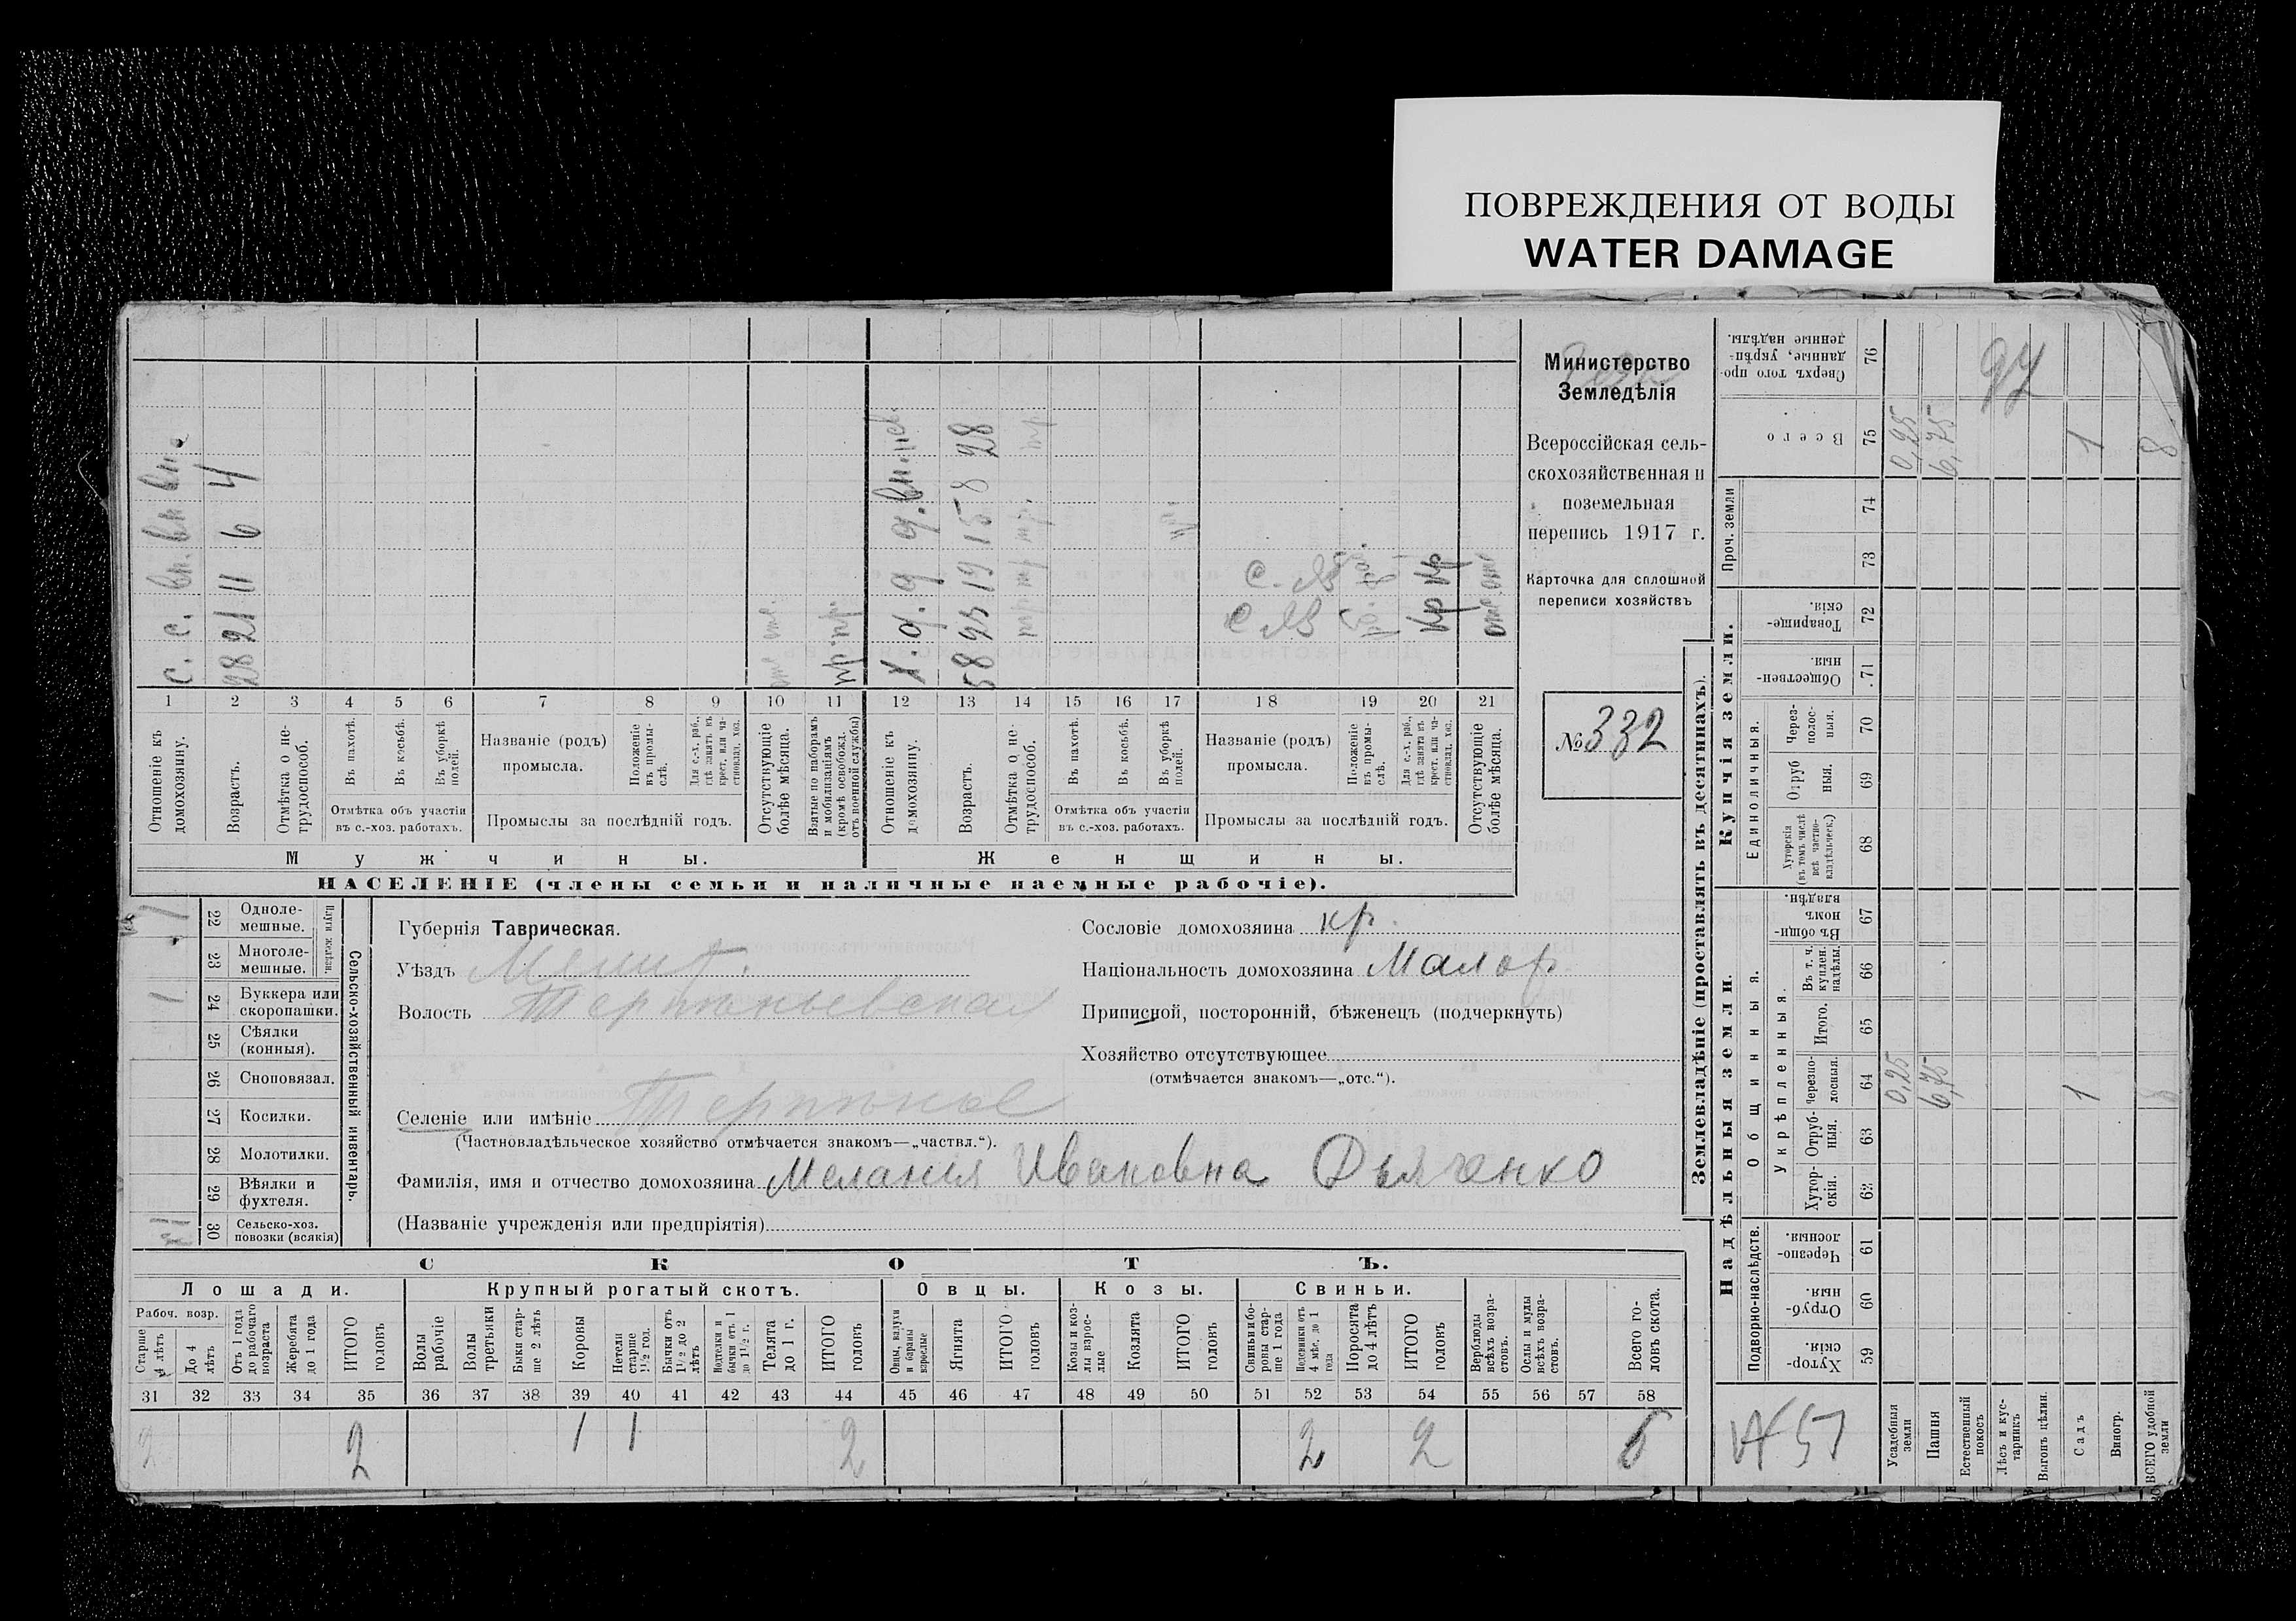 ПОВРЕЖДЕНИЯ ОТ ВОДЫ
WATER DAMAGE
Министерство
Земледѣлія
Всероссійская сель-
скохозяйственная и
поземельная
перепись 1917 г.
Карточка для сплошной
переписи хозяйствъ
№ 332
с. с. вн. вн вн.
28 21 11 6 4
пр. пр.
х д. д д. вн. нев.
58 23 19 15 8 28
кр кр
отс. отс
1 2 3 4 5 6 7 8 9 10 11 12 13 14 15 16 17 18 19 20 21
Отношеніе къ домохозяину.
Возрастъ.
Отмѣтка о не-трудоспособ.
Въ пахотѣ.
Въ косьбѣ.
Въ уборкѣ полей.
Отмѣтка объ участіи въ с.-хоз. работахъ.
Названіе (родъ) промысла.
Положеніе въ промы-слѣ.
Для с.-х. раб., гдѣ занятъ въ крест. или ча-стновлад. хоз.
Промыслы за послѣдній годъ.
Отсутствующіе болѣе мѣсяца.
Взятые по наборамъ и мобилизаціямъ (кромѣ освобожд. отъ военной службы)
Отношеніе къ домохозяину.
Возрастъ.
Отмѣтка о не-трудоспособ.
Въ пахотѣ.
Въ косьбѣ.
Въ уборкѣ полей.
Отмѣтка объ участіи въ с.-хоз. работахъ.
Названіе (родъ) промысла.
Положеніе въ промы-слѣ.
Для с.-х. раб., гдѣ занята въ крест. или ча-стновлад. хоз.
Промыслы за послѣдній годъ.
Отсутствующіе болѣе мѣсяца.
Мужчины. Женщины.
НАСЕЛЕНІЕ (члены семьи и наличные наемные рабочіе).
Сельско-хозяйственный инвентарь.
Плуги желѣзн.
22 Одноле-мешные. 1
23 Многоле-мешные.
24 Буккера или скоропашки. 1
25 Сѣялки (конныя).
26 Сноповязал.
27 Косилки.
28 Молотилки.
29 Вѣялки и фухтеля.
30 Сельско-хоз. повозки (всякія)
Губернія Таврическая.
Уѣздъ Мелит.
Волость Терпѣньевская
Селеніе или имѣніе Терпѣнье
(Частновладѣльческое хозяйство отмѣчается знакомъ—„частвл.“).
Фамилія, имя и отчество домохозяина Мелания Ивановна Дьяченко
(Названіе учрежденія или предпріятія)
Сословіе домохозяина кр.
Національность домохозяина Малор.
Приписной, посторонній, бѣженецъ (подчеркнуть)
Хозяйство отсутствующее
(отмѣчается знакомъ—„отс.“).
СКОТЪ.
Лошади. Крупный рогатый скотъ. Овцы. Козы. Свиньи.
Рабоч. возр.
Старше 4 лѣтъ
До 4 лѣтъ
Отъ 1 года до рабочаго возраста
Жеребята до 1 года
ИТОГО головъ
Волы рабочіе
Волы третьяки
Быки стар-ше 2 лѣтъ
Коровы
Нетели старше 1½ год.
Бычки отъ 1½ до 2 лѣтъ
Нетели и бычки отъ 1 до 1½ г.
Телята до 1 г.
ИТОГО головъ
Овцы, валухи и бараны взрослые
Ягнята
ИТОГО головъ
Козы и коз-лы взрос-лые
Козлята
ИТОГО головъ
Свиньи и бо-ровы стар-ше 1 года
Подсвинки отъ 4 мѣс. до 1 года
Поросята до 4 лѣтъ
ИТОГО головъ
Верблюды всѣхъ возра-стовъ.
Ослы и мулы всѣхъ возра-стовъ.
Всего го-ловъ скота.
31 32 33 34 35 36 37 38 39 40 41 42 43 44 45 46 47 48 49 50 51 52 53 54 55 56 57 58
2 2 1 1 2 2 2 6
Землевладѣніе (проставлять въ десятинахъ).
Надѣльныя земли. Купчія земли.
Подворно-наслѣдств.
Общинныя.
Укрѣпленныя.
Единоличныя.
Проч. земли
59 Хутор-скія.
60 Отруб-ныя.
61 Черезпо-лосныя.
62 Хутор-скія.
63 Отруб-ныя.
64 Черезпо-лосныя
65 Итого.
66 Въ т. ч. куплен. надѣлы.
67 Въ общи-номъ владѣн.
68 Хуторскія (въ томъ числѣ всѣ частно-владѣльческ.)
69 Отруб ныя.
70 Через-полос-ныя.
71 Обществен-ныя.
72 Товарище-скія.
73 74
75 Всего
76 Сверхъ того про-данные, укрѣп-ленные надѣлы.
Усадебныя земли 0,25 0,25
Пашня 6,75 6,75
Естественный покосъ
Лѣсъ и кус-тарникъ
Выгонъ цѣлин.
Садъ 1 1
Виногр.
ВСЕГО удобной земли 8 8
97
№ 51